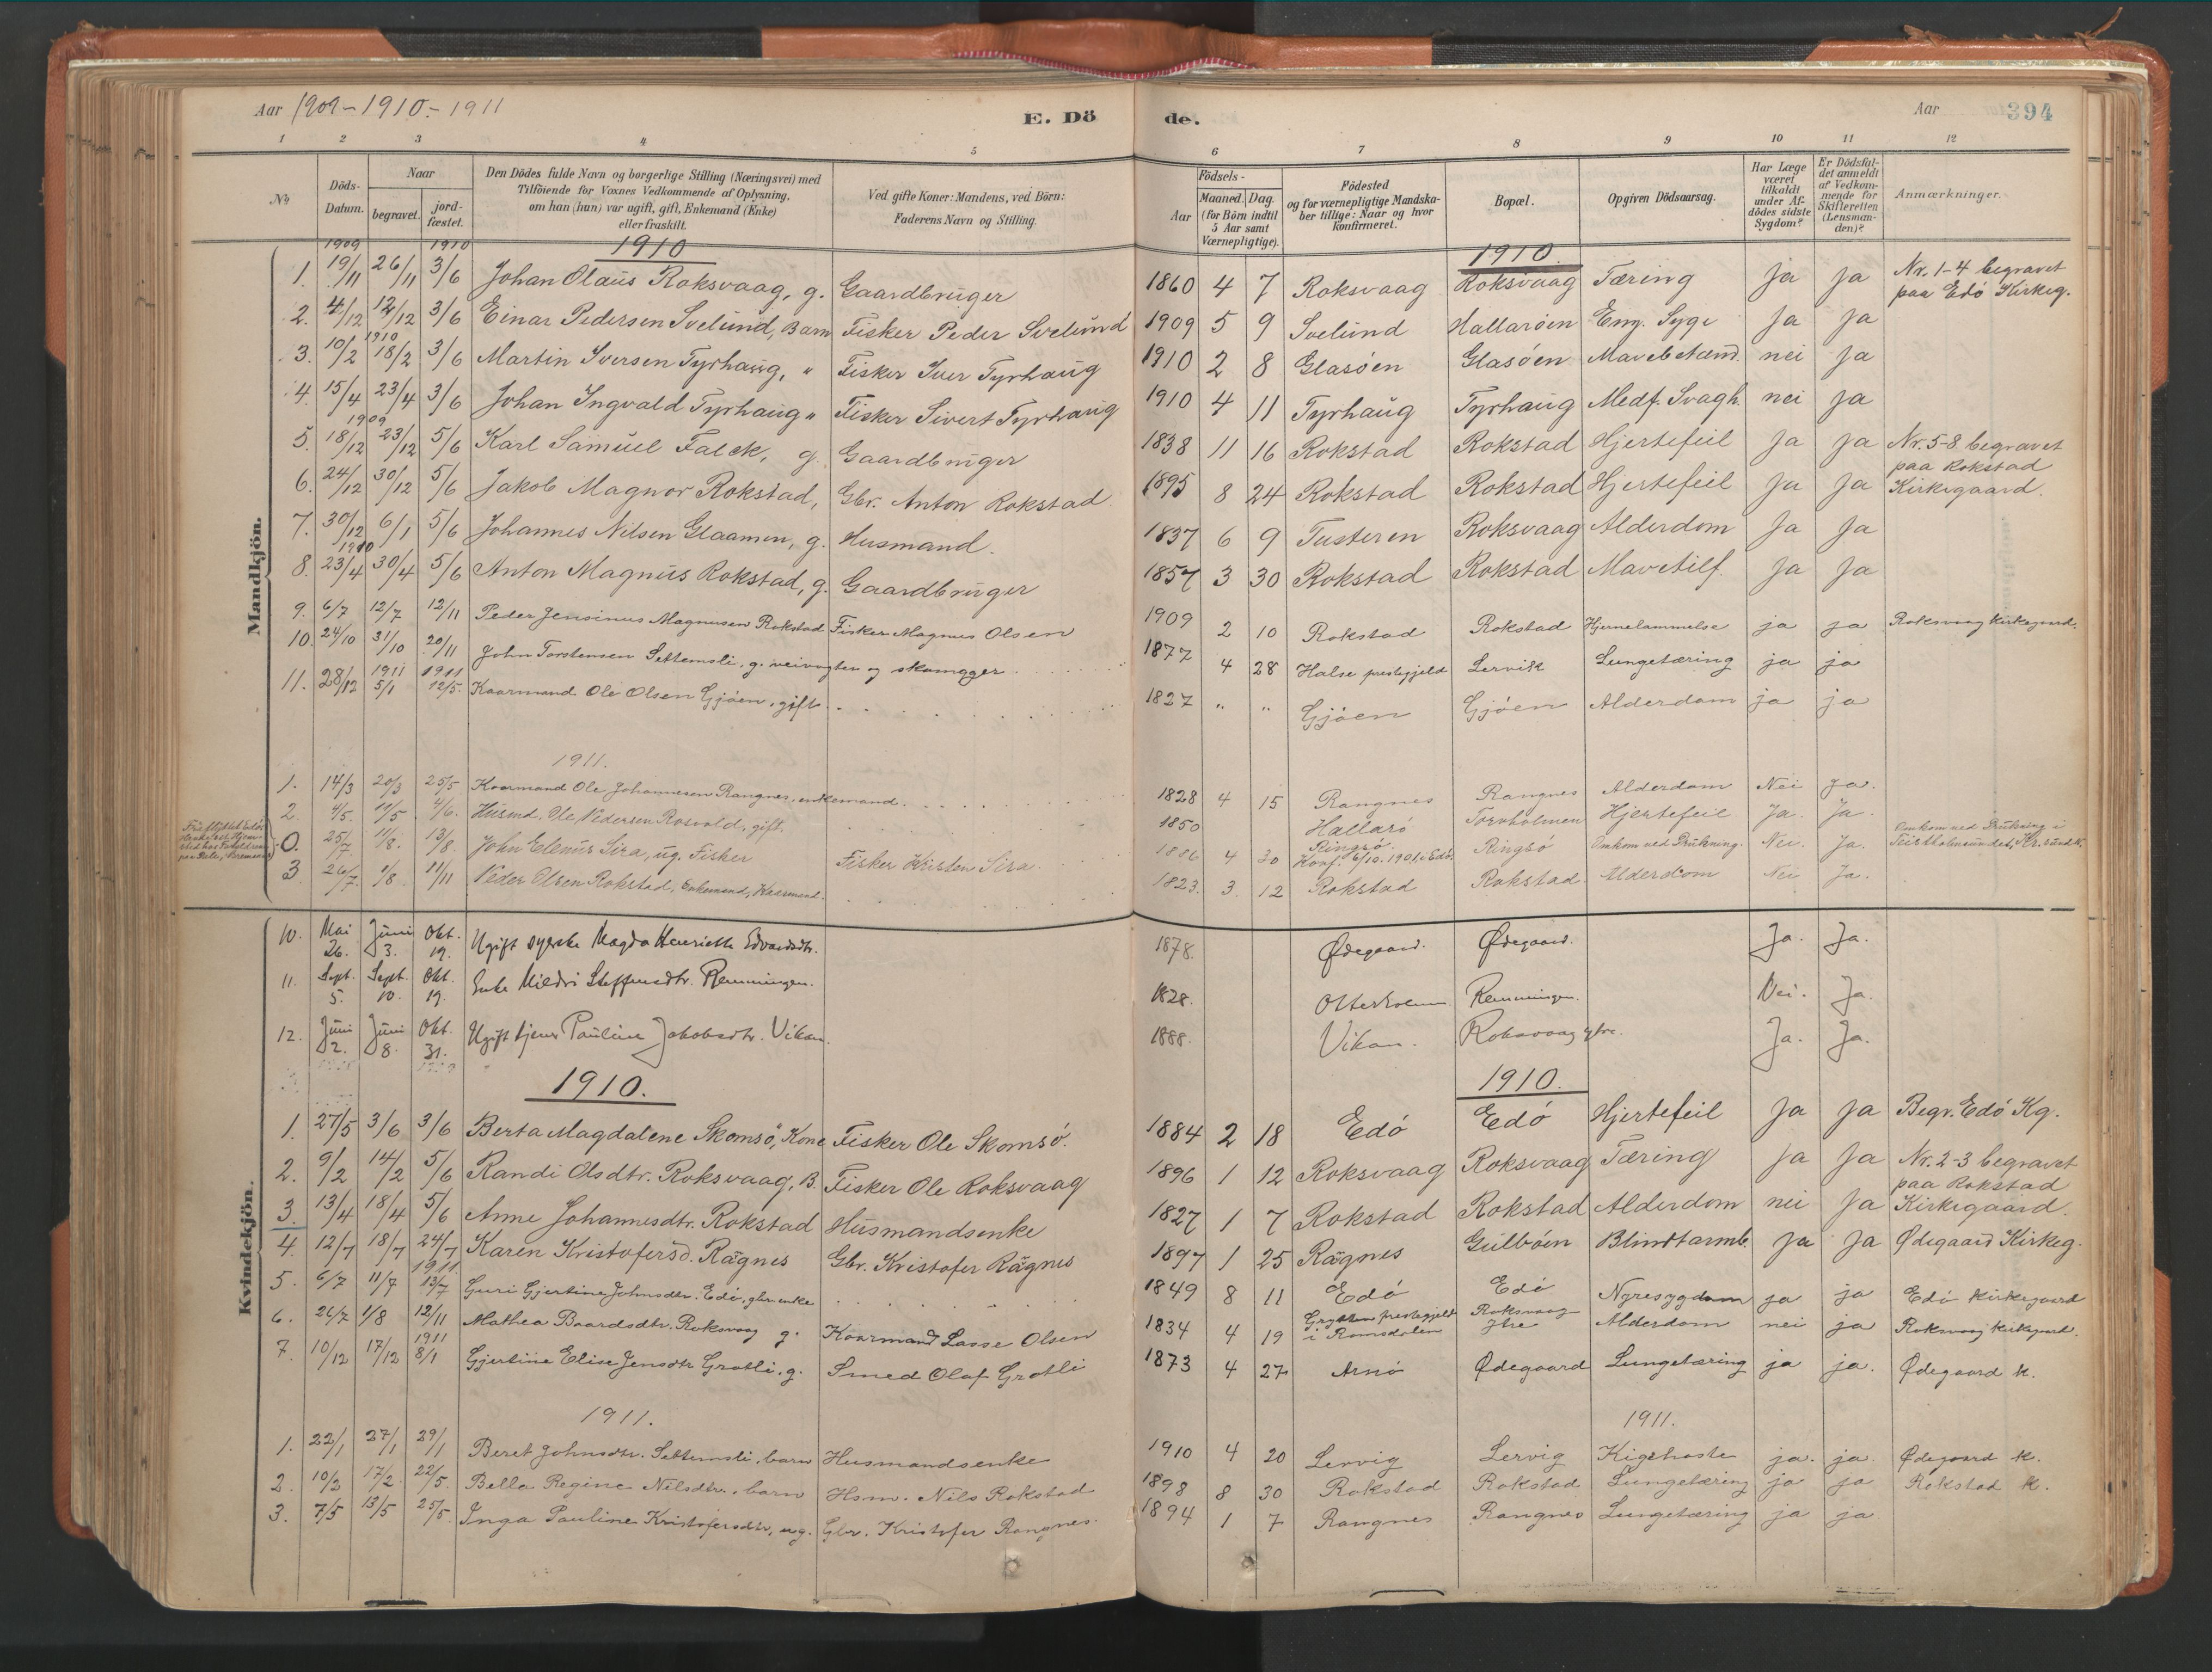 Aar 1909-1910-1911 E. Dö de. Aar 394
1 2 3 4 5 6 7 8 9 10 11 12
No Döds-Datum. Naar begravet. jordfæstet. Den Dödes fulde Navn og borgerlige Stilling (Næringsvei) med Tilföiende for Voxnes Vedkommende af Oplysning, om han (hun) var ugift, gift, Enkemand (Enke) eller fraskilt. Ved gifte Koner: Mandens, ved Börn: Faderens Navn og Stilling. Födsels- Aar Maaned. Dag. (for Börn indtil 5 Aar samt Værnepligtige). Födested og for værnepligtige Mandskaber tillige: Naar og hvor konfirmeret. Bopæl. Opgiven Dödsaarsag. Har Læge været tilkaldt under Afdödes sidste Sygdom? Er Dödsfaldet anmeldt af Vedkommende for Skifteretten (Lensmanden)? Anmærkninger.
Mandkjön.
1909 1910 1910 1910.
1. 19/11 26/11 3/6 Johan Olaus Roksvaag, g. Gaardbruger 1860 4 7 Roksvaag Roksvaag Tæring Ja Ja Nr. 1-4 begravet paa Edö Kirkeg.
2. 4/12 12/12 3/6 Einar Pedersen Svelund, Barn Fisker Peder Svelund 1909 5 9 Svelund Hallaröen Eng. Syge Ja Ja
1910
3. 10/2 18/2 3/6 Martin Iversen Tyrhaug, " Fisker Iver Tyrhaug 1910 2 8 Glasöen Glasöen Mavebetænd. nei Ja
4. 15/4 23/4 3/6 Johan Ingvald Tyrhaug " Fisker Sivert Tyrhaug 1910 4 11 Tyrhaug Tyrhaug Medf. Svagh. nei Ja
1909
5. 18/12 23/12 5/6 Karl Samuel Falck, g. Gaardbruger 1838 11 16 Rokstad Rokstad Hjertefeil Ja Ja Nr. 5-8 begravet paa Rokstad Kirkegaard.
6. 24/12 30/12 5/6 Jakob Magnor Rokstad, Gbr. Anton Rokstad 1895 8 24 Rokstad Rokstad Hjertefeil Ja Ja
7. 30/12 6/1 5/6 Johannes Nilsen Glaamen, g. Husmand. 1837 6 9 Tusteren Roksvaag Alderdom Ja Ja
1910
8. 23/4 30/4 5/6 Anton Magnus Rokstad, g. Gaardbruger 1857 3 30 Rokstad Rokstad Mavetilf. Ja Ja
9. 6/7 12/7 12/11 Peder Jensinus Magnusen Rokstad Fisker Magnus Olsen 1909 2 10 Rokstad Rokstad Hjernelammelse ja ja Roksvaag kirkegaard.
10. 24/10 31/10 20/11 John Torstensen Settemsli, g. veivogter og skomager 1877 4 28 Halse prestegjeld Lervik Lungetæring ja ja
1911 1911
11. 28/12 5/1 12/5. Kaarmand Ole Olsen Gjöen, gift 1827 " " Gjöen Gjöen Alderdom ja ja
1911.
1. 14/3 20/3 25/5 Kaarmand Ole Johannesen Rangnes, enkemand. 1828 4 15 Rangnes Rangnes Alderdom Nei Ja.
2. 4/5. 11/5 4/6. Husmd. Ole Pedersen Rosvold, gift. 1850 Hallarö Torvholmen Hjertefeil Ja. Ja.
0. 25/7 11/8. 13/8. John Elenus Sira, ug. Fisker Fisker Kristen Sira 1886 4 20 Ringsö. Konf. 6/10. 1901 i Edö. Ringsö Omkom ved Drukning. Nei. Ja. Omkom ved Drukning i Teistholmsundet, Kr.sund N.
3 26/7. 1/8 11/11 Peder Olsen Rokstad, Enkemand, Kaarmand. 1823. 3. 12 Rokstad Rokstad. Alderdom Nei Ja.
Kvindekjön.
10. Mai 26. Juni 3. Okt. 19. Ugift syerske Magda Henriette Edvardsdtr. 1878. Ødegaard. Ødegaard. Ja. Ja.
11. Sept. 5. Sept. 10. Okt. 19. Enke Mildri Steffensdtr. Remmingen. 1828. Otterholmen Remmingen. Nei. Ja.
12. Juni 2. Juni 8. Okt. 31. Ugift tjener Pauline Jakobsdtr. Vikan. 1888. Vikan. Roksvaag ytre. Ja. Ja.
1910. 1910.
1. 27/5 3/6 3/6 Berta Magdalene Skomsö, Kone Fisker Ole Skomsö. 1884 2 18 Edö Edö Hjertefeil Ja Ja Begr. Edö Kg.
2. 9/2 14/2 5/6 Randi Olsdtr. Roksvaag, B. Fisker Ole Roksvaag 1896 1 12 Roksvaag Roksvaag Tæring Ja Ja Nr. 2-3 begravet paa Rokstad Kirkegaard.
3. 13/4 18/4 5/6 Anne Johannesdtr. Rokstad Husmandsenke 1827 1 7 Rokstad Rokstad Alderdom nei Ja
4. 12/7 18/7 24/7 Karen Kristofersd. Rägnes Gbr. Kristofer Rägnes 1897 1 25 Rägnes Gulböen Blindtarmb. Ja Ja Ødegaard Kirkeg.
1911
5. 6/7 11/7 13/7 Guri Gjertine Johnsdtr. Edö, gbr. enke 1849 8 11 Edö Edö Nyresygdom ja ja Edö kirkegaard
6. 26/7 1/8 12/11 Mathea Baardsdtr. Roksvaag g. Kaarmand Lasse Olsen 1834 4 19 Gryttens prestegjeld i Romsdalen Roksvaag Ytre Alderdom nei ja Roksvaag kirkegaard.
1911
7. 10/12 17/12 8/1 Gjertine Elise Jensdtr Grotli, g. Smed Olaf Grotli 1873 4 27 Arnö Ødegaard Lungetæring ja ja. Ødegaard k.
1911. 1911.
1. 22/1 27/1 29/1 Beret Johnsdtr. Settemsli, barn Husmandsenke 1910 4 20 Lervig Lervig Kighoste ja. ja. Ødegaard k.
2. 10/2 17/2. 22/5. Bella Regine Nilsdtr., barn Hsm. Nils Rokstad 1898 8 30 Rokstad Rokstad Lungetæring ja ja Rokstad k.
3. 7/5 13/5 25/5. Inga Pauline Kristofersdtr, ug. Gbr. Kristofer Rangnes. 1894 1 7 Rangnes Rangnes Lungetæring ja ja